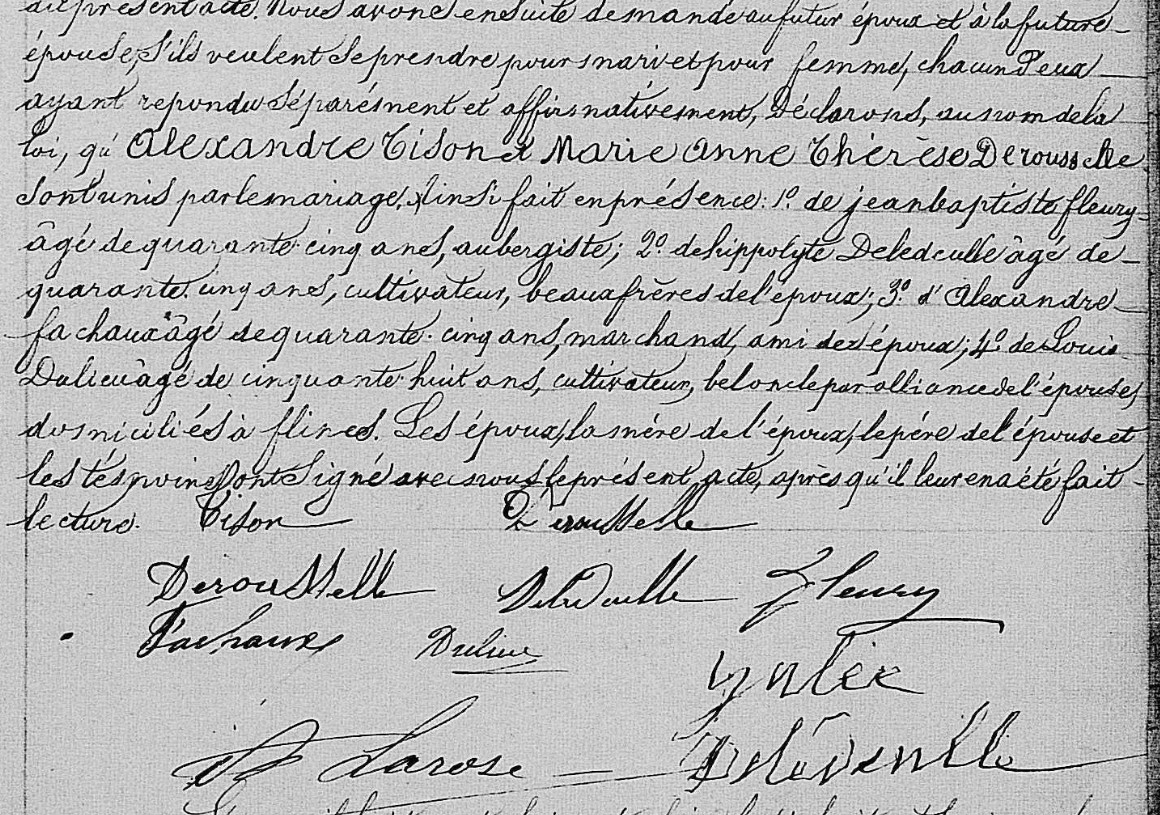 du présent acte. Nous avons ensuite demandé au futur époux et à la future
épouse, s'ils veulent se prendre pour mari et pour femme, chacun d'eux
ayant repondu séparément et affirmativement, Déclarons, au nom de la
loi, qu' Alexandre Tison et Marie Anne Thérèse Derousselle
sont unis par le mariage. Ainsi fait en présence: 1º. de jean baptiste fleury
âgé de quarante-cinq ans, aubergiste; 2º. de hippolyte Deledeulle âgé de
quarante-cinq ans, cultivateur, beaux frères de l'époux; 3º. d'Alexandre
fachaux âgé de quarante-cinq ans, marchand, ami de l'époux; 4º. de Louis
Dulieu âgé de cinquante-huit ans, cultivateur, bel oncle par alliance de l'épouse,
domiciliés à flines. Les époux, la mère de l'époux, le père de l'épouse et
les témoins ont signé avec nous le présent acte, après qu'il leur en a été fait
lecture. Tison Derousselle
Derousselle Deledeulle Fleury
Fachaux Dulieu
Larose